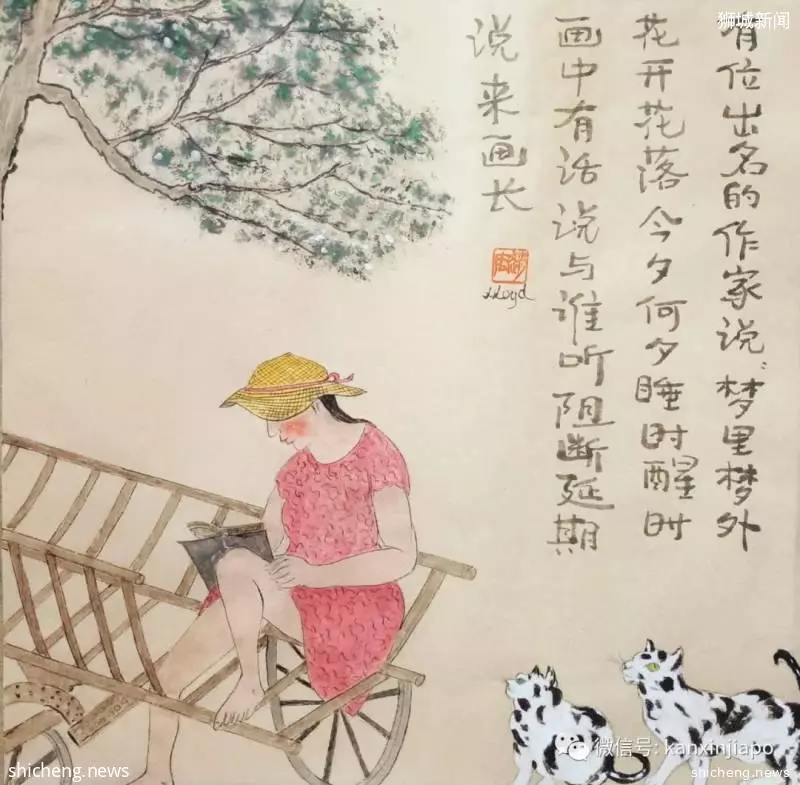 狮城新闻
有位出名的作家说：梦里梦外
花开花落今夕何夕睡时醒时
画中有话说与谁听阻断延期
说来画长
LLoyd
微信号: kanxinjiapo
shicheng.news
shicheng.news